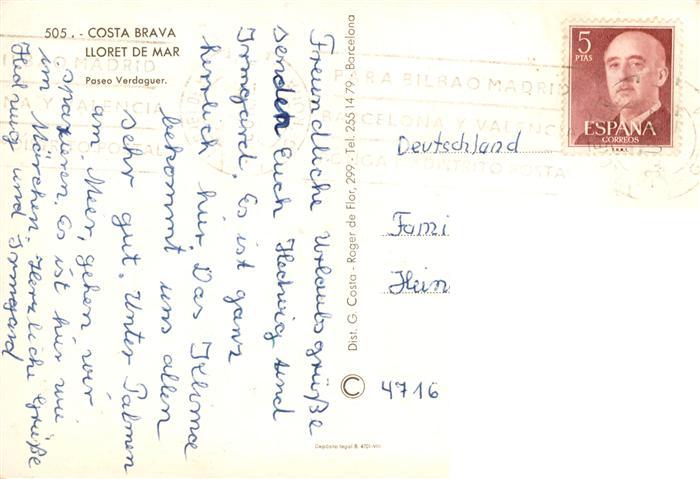 505. - COSTA BRAVA
LLORET DE MAR
Paseo Verdaguer.
Freundliche Urlaubsgrüße
senden Euch Hedwig und
Irmgard. Es ist ganz
herrlich hier. Das Klima
bekommt uns allen
sehr gut. Unter Palmen
am Meer, gehen wir
spazieren. Es ist hier wie
im Märchen. Herzliche Grüße
Hedwig und Irmgard
Dist. G. Costa - Roger de Flor, 299 - Tel. 255 14 79 - Barcelona
Depósito legal B. 4701-VIII
5
PTAS
ESPAÑA
CORREOS
PARA BILBAO MADRID
BARCELONA Y VALENCIA
DISTRITO POSTAL
BILBAO MADRID
NA Y VALENCIA
DISTRITO POSTAL
Deutschland
Fami
Hein
© 4716